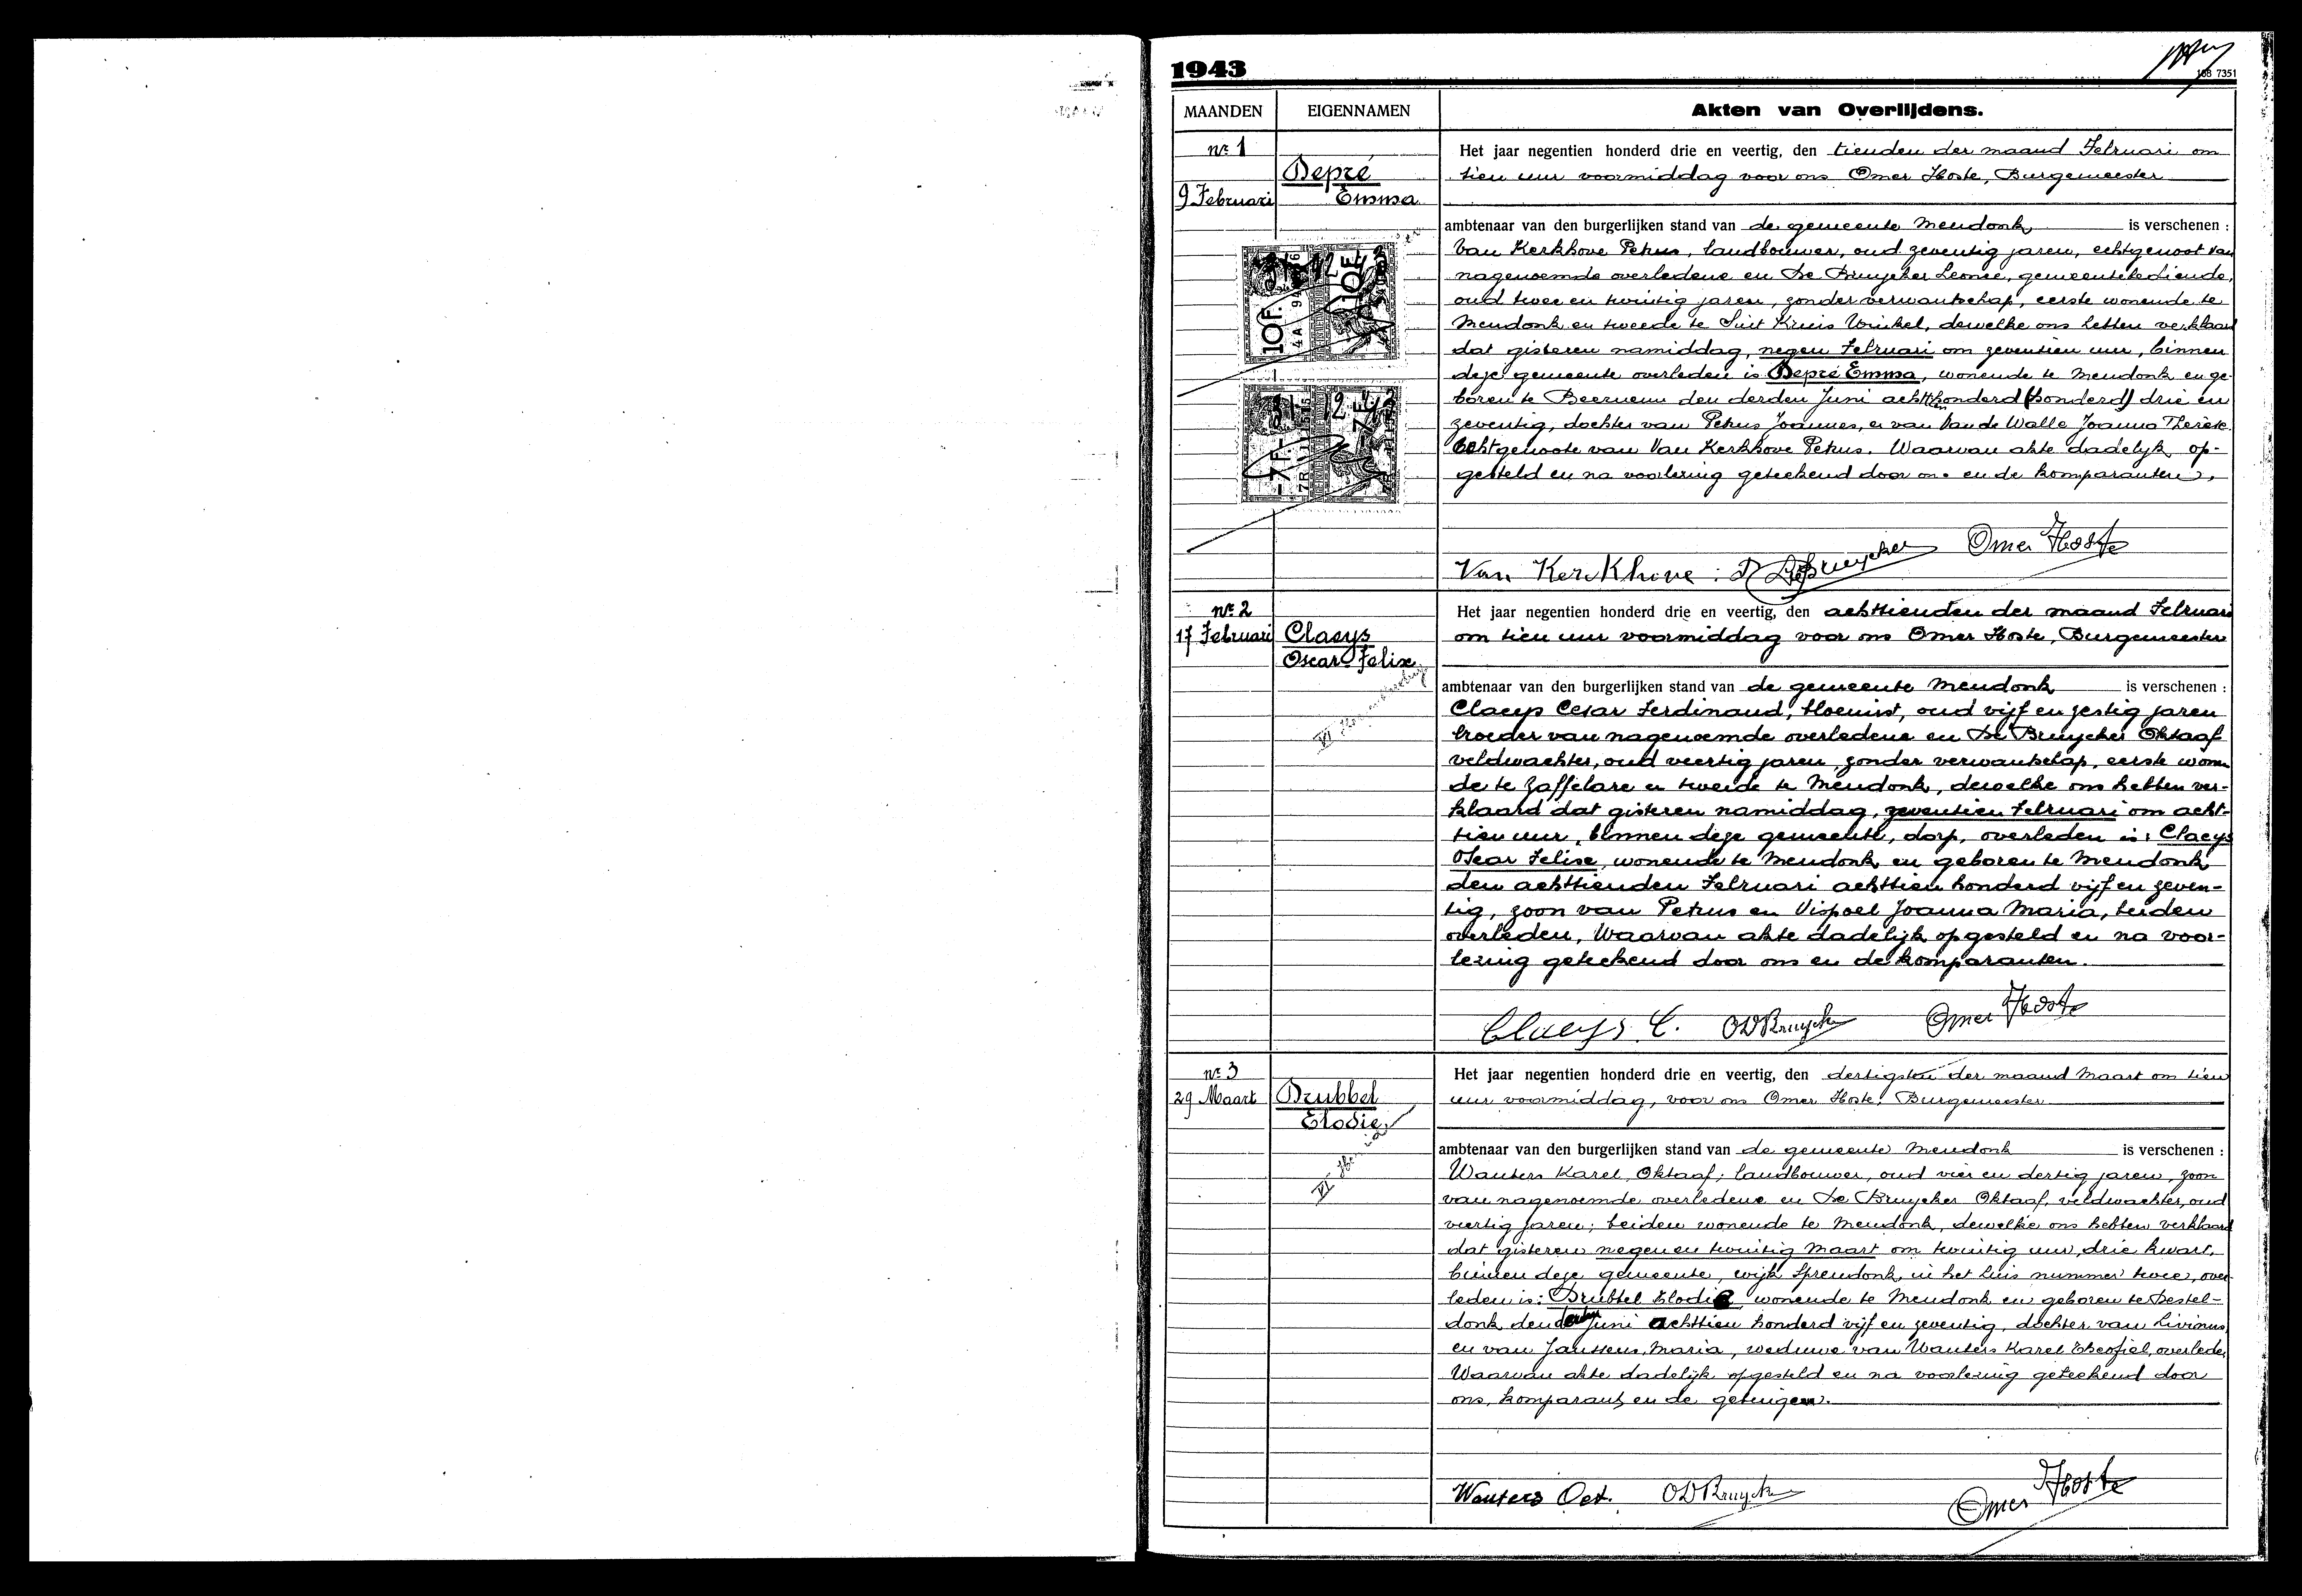 1943
188 7351
MAANDEN EIGENNAMEN Akten van Overlijdens.
nr 1
9 Februari
Depré
Emma
10F.
7F.
Het jaar negentien honderd drie en veertig, den tienden der maand Februari om
tien uur voormiddag voor ons Omer Hoste, Burgemeester
ambtenaar van den burgerlijken stand van de gemeente Mendonk is verschenen :
Van Kerkhove Petrus, landbouwer, oud zeventig jaren, echtgenoot van
nagenoemde overledene en De Bruycker Leonce, gemeentebediende,
oud twee en twintig jaren, zonder verwantschap, eerste wonende te
Mendonk en tweede te Sint Kruis Winkel, dewelke ons hebben verklaard
dat gisteren namiddag, negen Februari om zeventien uur, binnen
deze gemeente overleden is Depré Emma, wonende te Mendonk en ge-
boren te Beernem den derden Juni achttien honderd (honderd) drie en
zeventig, dochter van Petrus Joannes, en van Van de Walle Joanna Therèse.
Echtgenoote van Van Kerkhove Petrus. Waarvan akte dadelijk op-
gesteld en na voorlezing geteekend door ons en de komparanten.
Van Kerkhove : DeBruycker Omer Hoste
nr 2
17 Februari
Claeys
Oscar Felix
Het jaar negentien honderd drie en veertig, den achttienden der maand Februari
om tien uur voormiddag voor ons Omer Hoste, Burgemeester
ambtenaar van den burgerlijken stand van de gemeente Mendonk is verschenen :
Claeys Cesar Ferdinand, bloemist, oud vijf en zestig jaren
broeder van nagenoemde overledene en De Bruycker Oktaaf
veldwachter, oud veertig jaren, zonder verwantschap, eerste wonen
de te Zaffelare en tweede te Mendonk, dewelke ons hebben ver-
klaard dat gisteren namiddag, zeventien Februari om acht-
tien uur, binnen deze gemeente, dorp, overleden is: Claeys
Oscar Felix, wonende te Mendonk en geboren te Mendonk
den achttienden Februari achttien honderd vijf en zeven-
tig, zoon van Petrus en Vispoel Joanna Maria, beiden
overleden, Waarvan akte dadelijk opgesteld en na voor-
lezing geteekend door ons en de komparanten.
Claeys C. ODBruycker Omer Hoste
nr 3
29 Maart
Drubbel
Elodie
Het jaar negentien honderd drie en veertig, den dertigsten der maand Maart om tien
uur voormiddag, voor ons Omer Hoste, Burgemeester
ambtenaar van den burgerlijken stand van de gemeente Mendonk is verschenen :
Wauters Karel, Oktaaf, landbouwer, oud vier en dertig jaren, zoon
van nagenoemde overledene en De Bruycker Oktaaf, veldwachter, oud
veertig jaren; beiden wonende te Mendonk, dewelke ons hebben verklaard
dat gisteren negen en twintig Maart om twintig uur, drie kwart,
binnen deze gemeente, wijk Sprendonk, in het huis nummer twee, over-
leden is: Drubbel Elodie wonende te Mendonk en geboren te Destel-
donk den Juni achttien honderd vijf en zeventig, dochter van Livinus,
en van Janssens Maria, weduwe van Wauters Karel Theofiel, overleden,
Waarvan akte dadelijk opgesteld en na voorlezing geteekend door
ons, komparant, en de getuigen.
Wauters Oct. ODBruycker Omer Hoste